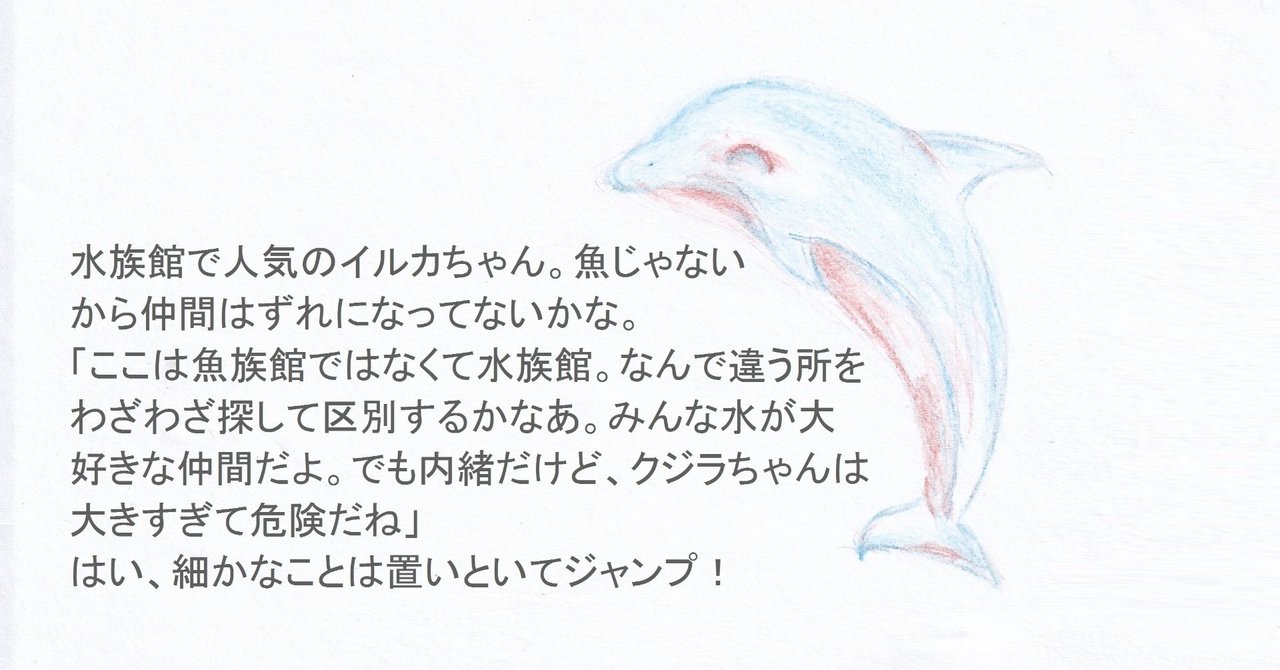 水族館で人気のイルカちゃん。魚じゃない
から仲間はずれになってないかな。
「ここは魚族館ではなくて水族館。なんで違う所を
わざわざ探して区別するかなあ。みんな水が大
好きな仲間だよ。でも内緒だけど、クジラちゃんは
大きすぎて危険だね」
はい、細かなことは置いといてジャンプ！